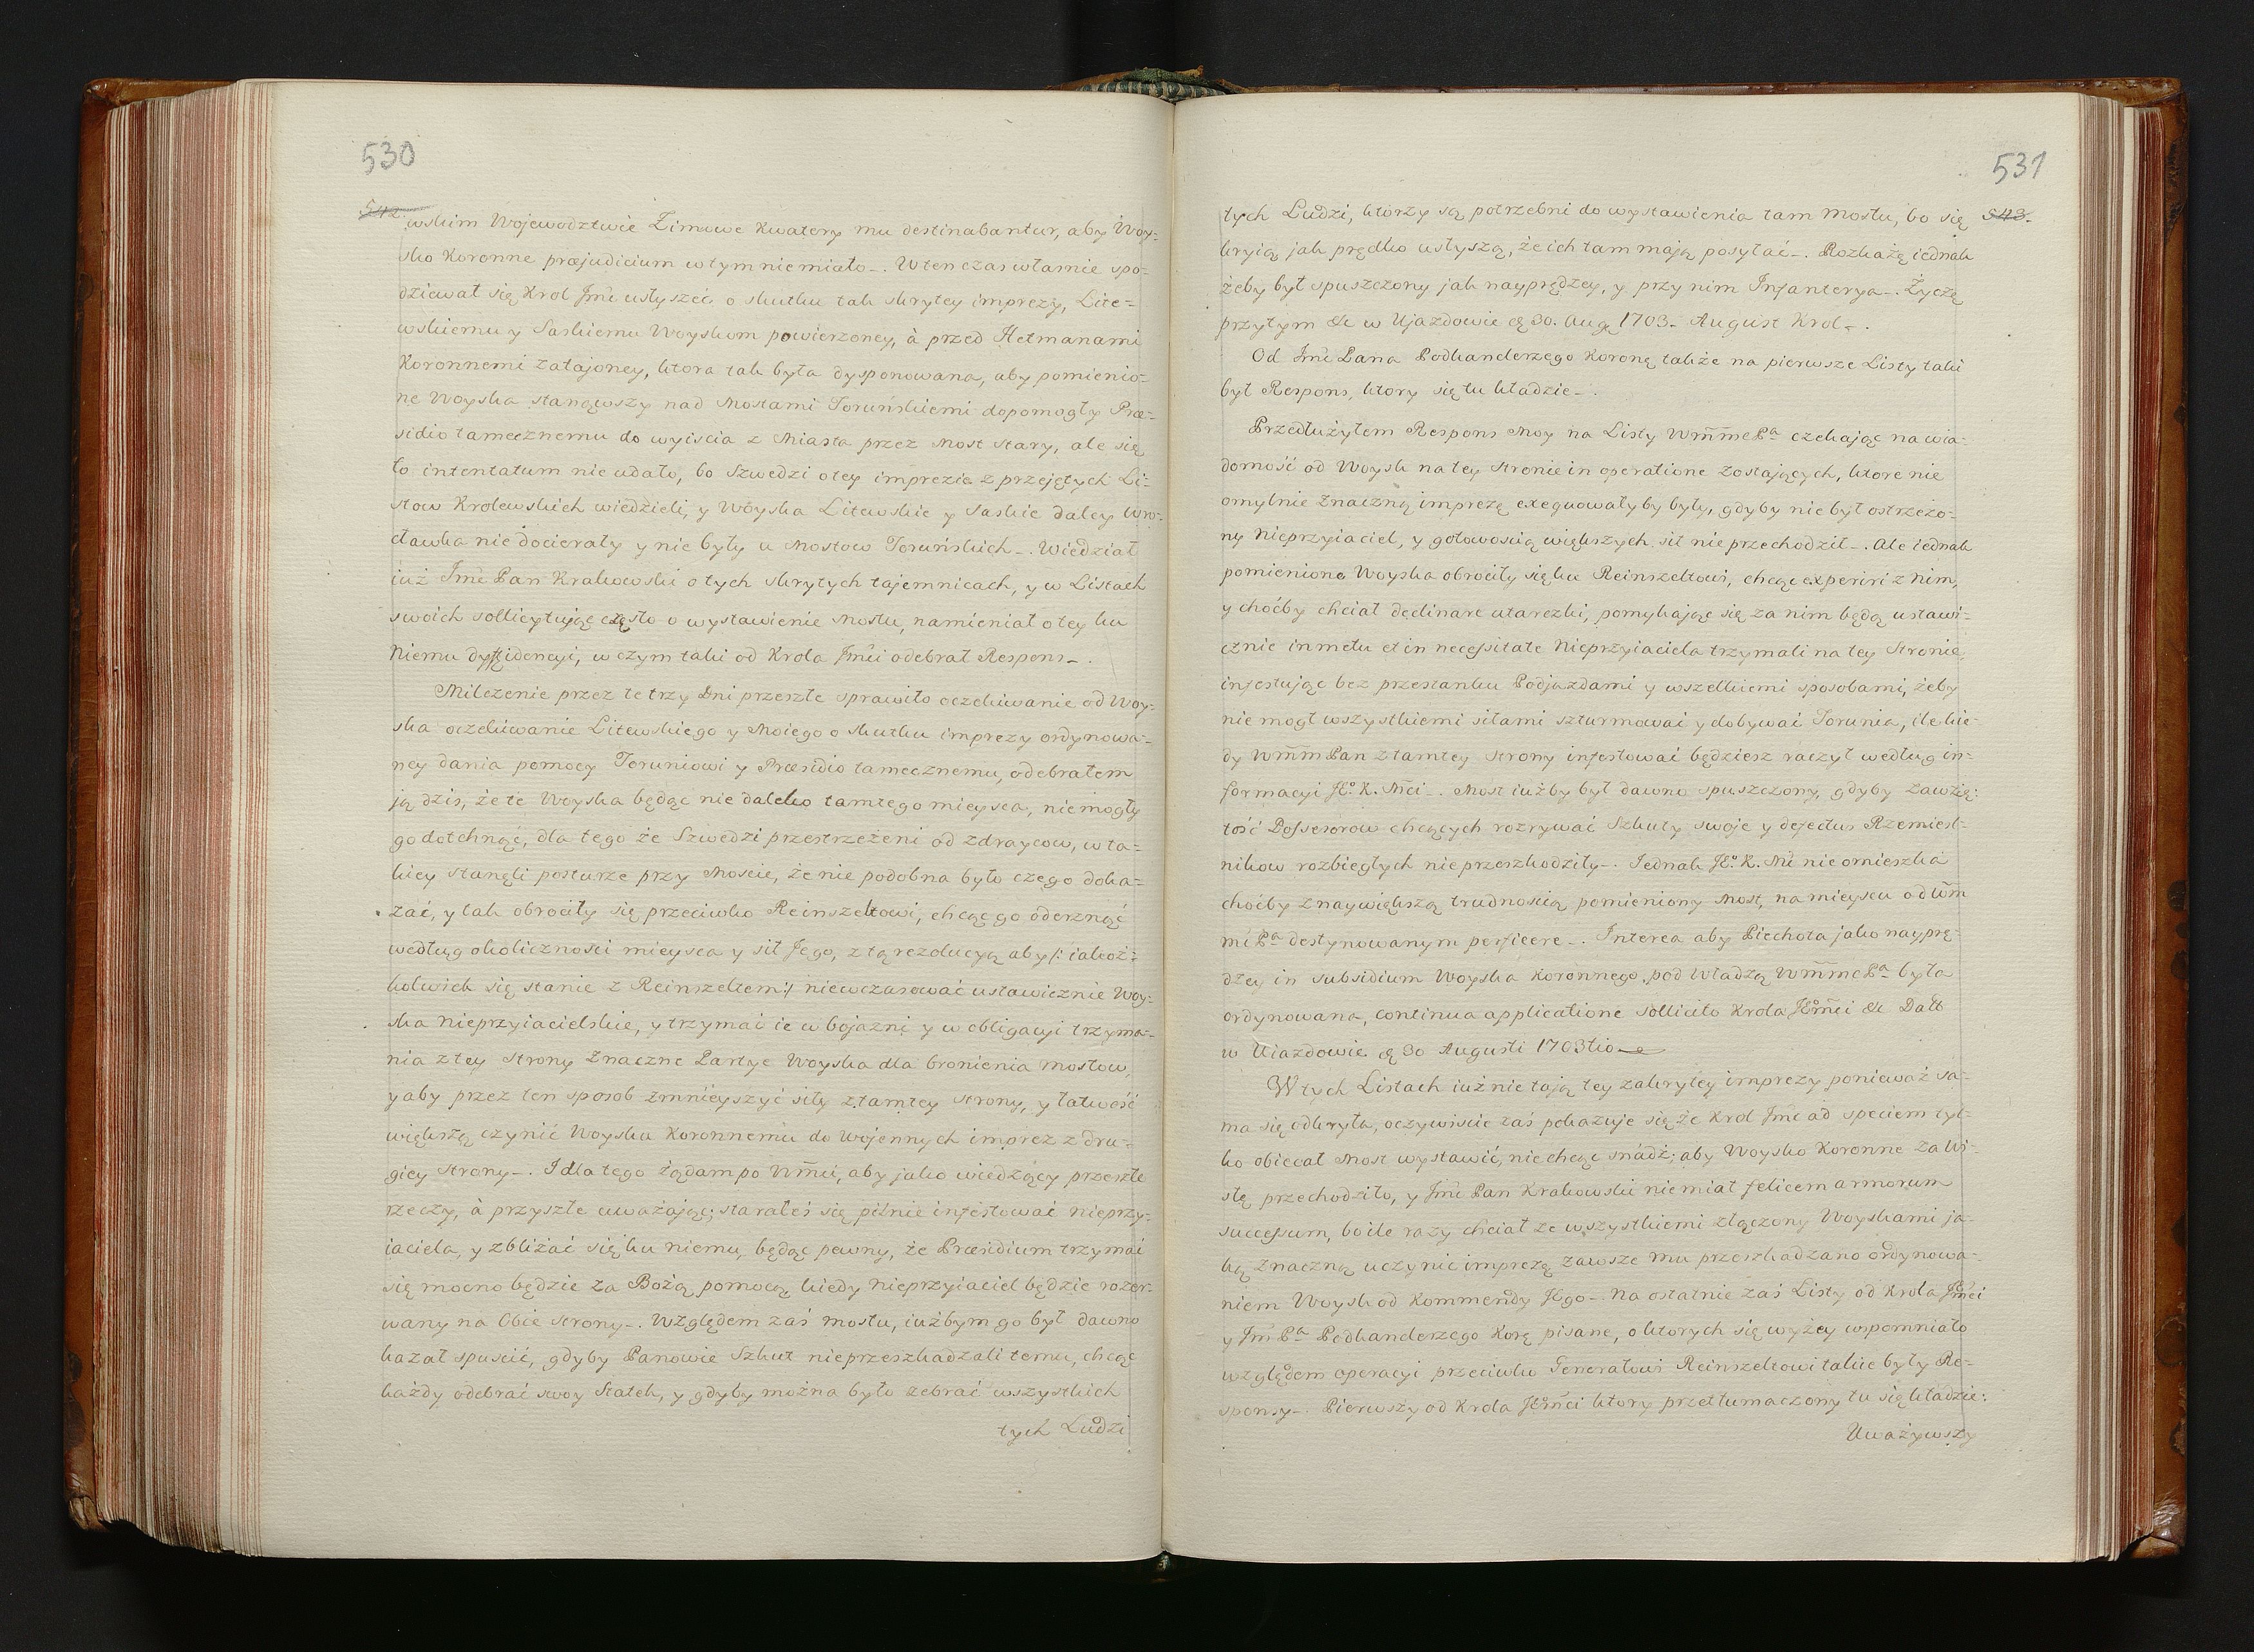 530
542.
wskim Wojewodztwie Zimowe Kwatery mu destinabantur, aby Woy-
sko Koronne præjudicium w tym nie miało. W ten czas własnie spo-
dziewał się Krol Jmć usłyszeć o skutku tak skrytey imprezy, Lite-
wskiemu y Saskiemu Woyskom powierzoney, à przed Hetmanami
Koronnemi zatajoney, ktora tak była dysponowana, aby pomienio-
ne Woyska stanąwszy nad Mostami Toruńskiemi dopomogły Præ-
sidio tamecznemu do wyiscia z Miasta przez Most stary, ale się
to intentatum nie udało, bo Szwedzi o tey imprezie z przejętych Li-
stow Krolewskich wiedzieli, y Woyska Litewskie y Saskie daley Wro-
cławka nie docierały y nie były u Mostow Toruńskich. Wiedział
iuż Jmć Pan Krakowski o tych skrytych tajemnicach, y w Listach
swoich sollicytując często o wystawienie Mostu, namieniał o tey ku
Niemu dyffidencyi, w czym taki od Krola Jmći odebrał Respons.
Milczenie przez te trzy Dni przeszłe sprawiło oczekiwanie od Woy-
ska oczekiwanie Litewskiego y Moiego o skutku imprezy ordynowa-
ney dania pomocy Toruniowi y Præsidio tamecznemu, odebrałem
ją dzis, że te Woyska będąc nie daleko tamtego mieysca, nie mogły
go dotchnąć, dla tego że Szwedzi przestrzeżeni od zdraycow, w ta-
kiey stanęli posturze przy Moscie, że nie podobna było czego doka-
zać, y tak obrociły się przeciwko Reinszeltowi, chcąc go oderznąć
według okolicznosci mieysca y sił Jego, z tą rezolucyą aby /: iakoż-
kolwiek się stanie z Reinszeltem :/ niewczasować ustawicznie Woy-
ska Nieprzyiacielskie, y trzymać ie w bojazni y w obligacyi trzyma-
nia z tey Strony Znaczne Partye Woyska dla bronienia mostow,
y aby przez ten sposob zmnieyszyć siły z tamtey strony, y łatwość
większą czynić Woysku Koronnemu do Wojennych imprez z dru-
giey strony. I dla tego żądam po Wmći, aby jako wiedzący przeszłe
rzeczy, à przyszłe uważając, starałeś się pilnie infestować nieprzy-
iaciela, y zbliżać się ku niemu, będąc pewny, że Præsidium trzymać
się mocno będzie za Bożą pomocą, kiedy Nieprzyiaciel będzie rozer-
wany na Obie strony. Względem zaś mostu, iużbym go był dawno
kazał spuscić, gdyby Panowie Szkut nieprzeszkadzali temu, chcąc
każdy odebrać swoy Statek, y gdyby można było zebrać wszystkich
tych Ludzi
531
543.
tych Ludzi, ktorzy są potrzebni do wystawienia tam Mostu, bo się
kryią jak prędko usłyszą, że ich tam mają posyłać. Rozkażę iednak
żeby był spuszczony jak nayprędzey, y przy nim Infanterya. Życzę
przytym &c w Ujazdowie 30. Aug 1703. August Krol.
Od Jmć Pana Podkanclerzego Koroną także na pierwsze Listy taki
był Respons, ktory się tu kładzie.
Przedłużyłem Respons Moy na Listy Wmm̃e Pa czekając na wia-
domość od Woysk na tey stronie in operatione zostających, ktore nie
omylnie Znaczną imprezę exequowały by były, gdyby nie był ostrzeżo-
ny Nieprzyiaciel, y gotowością większych sił nie przechodził. Ale iednak
pomienione Woyska obrociły się ku Reinszeltowi, chcąc experiri z Nim,
y choćby chciał declinare utarczki, pomykając się za nim będą ustawi-
cznie in metu et in necessitate Nieprzyiaciela trzymali na tey Stronie,
infestując bez przestanku Podjazdami y wszelkiemi sposobami, żeby
nie mogł wszystkiemi siłami szturmować y dobywać Torunia, ile kie-
dy Wmm Pan z tamtey strony infestować będziesz raczył według in-
formacyi JKo. K. Mći. Most iużby był dawno spuszczony, gdyby zawzię-
tość Possesorow chcących rozrywać Szkuty swoje y defectus Rzemiesł-
nikow rozbiegłych nie przeszkodziły. Jednak Jo. K. Mć nie omieszka
choćby z naywiększą trudnoscią pomieniony Most, na mieyscu od Wm̃
mć Pa destynowanym perficere. Interea aby Piechota jako nayprę-
dzey in subsidium Woyska Koronnego pod Władzą Wm̃me Pa była
ordynowana, continua applicatione sollicito Krola Jmći &c Datt
w Uiazdowie 30 Augusti 1703tio
W tych Listach iuż nie tają tey zakrytey imprezy ponieważ sa-
ma się odkryła, oczywiscie zaś pokazuje się że Krol Jmć ad speciem tyl-
ko obiecał Most wystawić, nie chcąc snadź, aby Woysko Koronne za Wi-
słę przechodziło, y Jmć Pan Krakowski nie miał felicem armorum
successum, bo ile razy chciał ze wszystkiemi złączony Woyskami ja-
ką Znaczną uczynić imprezę zawsze mu przeszkadzano ordynowa-
niem Woysk od Kommendy JEgo. Na ostatnie zaś Listy od Krola Jmći
y Jm̃ Pa Podkanclerzego Korę pisane, o ktorych się wyżey wspomniało
względem operacyi przeciwko Generałowi Reinszeltowi takie były Re-
sponsy. Pierwszy od Krola Jmći ktory przetłumaczony tu się kładzie:
Uważywszy